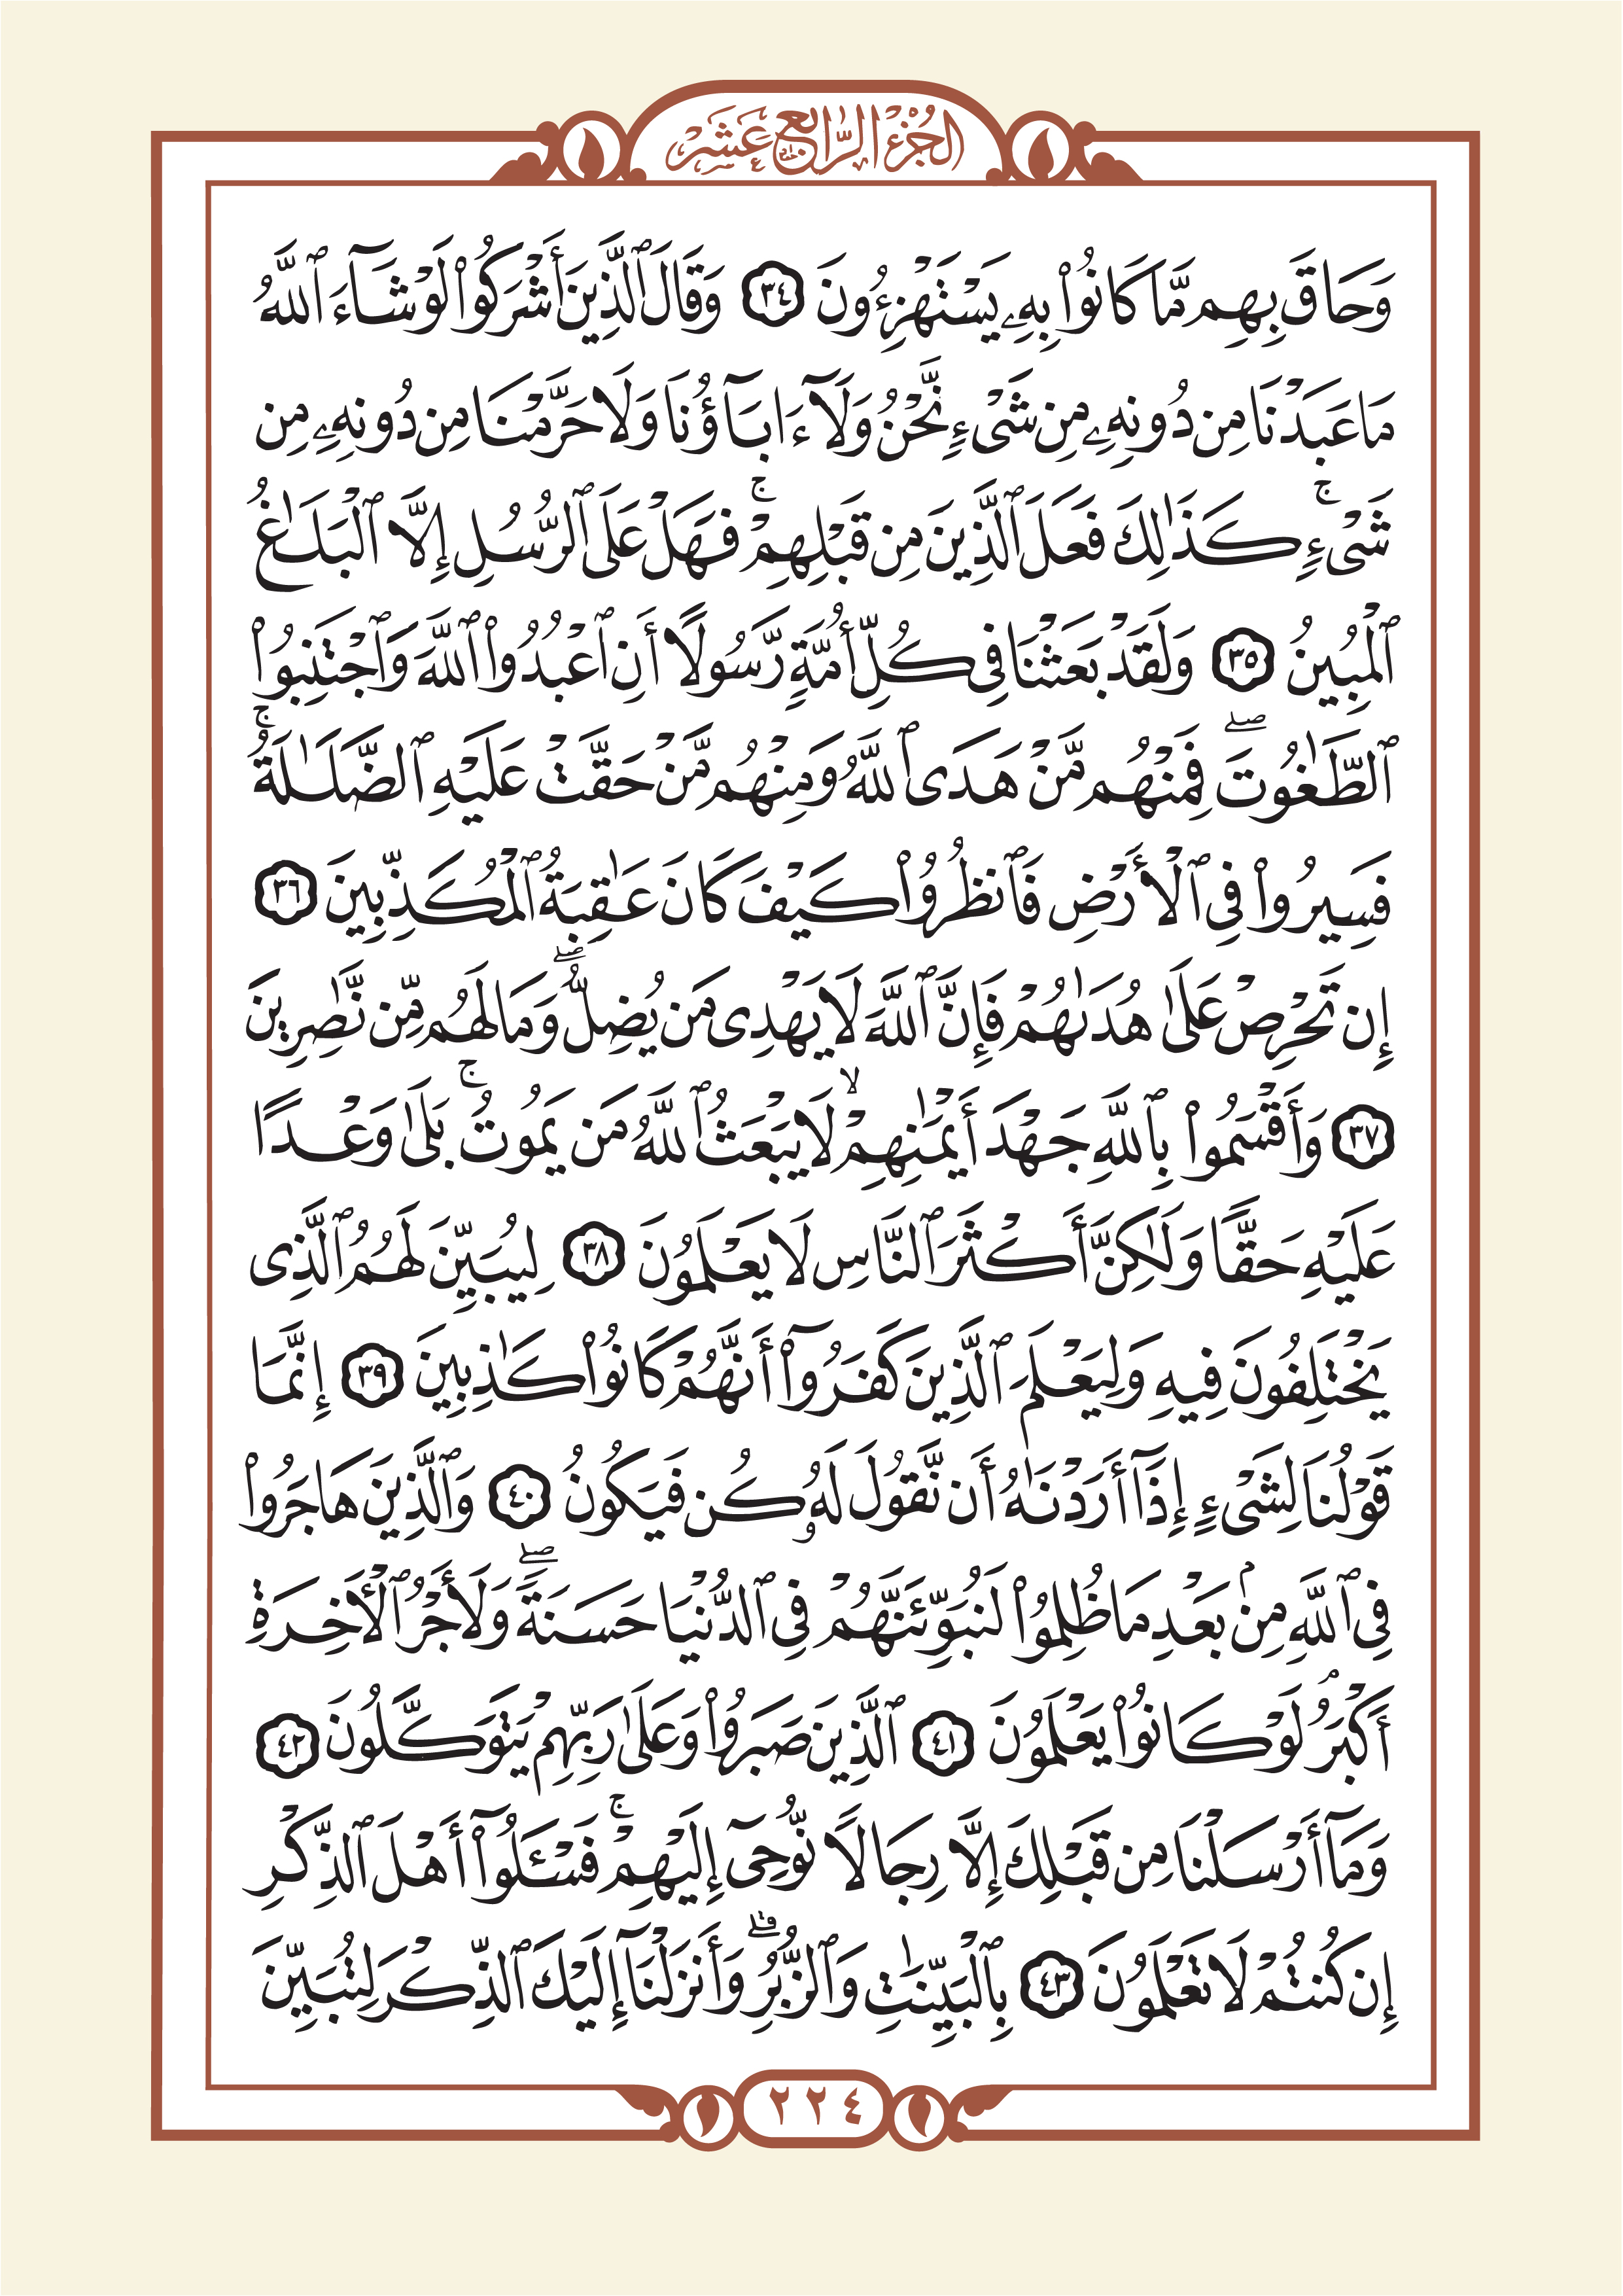 الجزء الرابع عشر
وَحَاقَ بِهِم مَّا كَانُوا۟ بِهِۦ يَسْتَهْزِءُونَ ٣٤ وَقَالَ ٱلَّذِينَ أَشْرَكُوا۟ لَوْ شَآءَ ٱللَّهُ
مَا عَبَدْنَا مِن دُونِهِۦ مِن شَىْءٍ نَّحْنُ وَلَآ ءَابَآؤُنَا وَلَا حَرَّمْنَا مِن دُونِهِۦ مِن
شَىْءٍ ۚ كَذَٰلِكَ فَعَلَ ٱلَّذِينَ مِن قَبْلِهِمْ ۚ فَهَلْ عَلَى ٱلرُّسُلِ إِلَّا ٱلْبَلَٰغُ
ٱلْمُبِينُ ٣٥ وَلَقَدْ بَعَثْنَا فِى كُلِّ أُمَّةٍ رَّسُولًا أَنِ ٱعْبُدُوا۟ ٱللَّهَ وَٱجْتَنِبُوا۟
ٱلطَّٰغُوتَ ۖ فَمِنْهُم مَّنْ هَدَى ٱللَّهُ وَمِنْهُم مَّنْ حَقَّتْ عَلَيْهِ ٱلضَّلَٰلَةُ ۚ
فَسِيرُوا۟ فِى ٱلْأَرْضِ فَٱنظُرُوا۟ كَيْفَ كَانَ عَٰقِبَةُ ٱلْمُكَذِّبِينَ ٣٦
إِن تَحْرِصْ عَلَىٰ هُدَىٰهُمْ فَإِنَّ ٱللَّهَ لَا يَهْدِى مَن يُضِلُّ ۖ وَمَا لَهُم مِّن نَّٰصِرِينَ
٣٧ وَأَقْسَمُوا۟ بِٱللَّهِ جَهْدَ أَيْمَٰنِهِمْ ۙ لَا يَبْعَثُ ٱللَّهُ مَن يَمُوتُ ۚ بَلَىٰ وَعْدًا
عَلَيْهِ حَقًّا وَلَٰكِنَّ أَكْثَرَ ٱلنَّاسِ لَا يَعْلَمُونَ ٣٨ لِيُبَيِّنَ لَهُمُ ٱلَّذِى
يَخْتَلِفُونَ فِيهِ وَلِيَعْلَمَ ٱلَّذِينَ كَفَرُوٓا۟ أَنَّهُمْ كَانُوا۟ كَٰذِبِينَ ٣٩ إِنَّمَا
قَوْلُنَا لِشَىْءٍ إِذَآ أَرَدْنَٰهُ أَن نَّقُولَ لَهُۥ كُن فَيَكُونُ ٤٠ وَٱلَّذِينَ هَاجَرُوا۟
فِى ٱللَّهِ مِنۢ بَعْدِ مَا ظُلِمُوا۟ لَنُبَوِّئَنَّهُمْ فِى ٱلدُّنْيَا حَسَنَةً ۖ وَلَأَجْرُ ٱلْأَخِرَةِ
أَكْبَرُ ۘ لَوْ كَانُوا۟ يَعْلَمُونَ ٤١ ٱلَّذِينَ صَبَرُوا۟ وَعَلَىٰ رَبِّهِمْ يَتَوَكَّلُونَ ٤٢
وَمَآ أَرْسَلْنَا مِن قَبْلِكَ إِلَّا رِجَالًا نُّوحِىٓ إِلَيْهِمْ ۚ فَسْـَٔلُوٓا۟ أَهْلَ ٱلذِّكْرِ
إِن كُنتُمْ لَا تَعْلَمُونَ ٤٣ بِٱلْبَيِّنَٰتِ وَٱلزُّبُرِ ۗ وَأَنزَلْنَآ إِلَيْكَ ٱلذِّكْرَ لِتُبَيِّنَ
٢٢٤